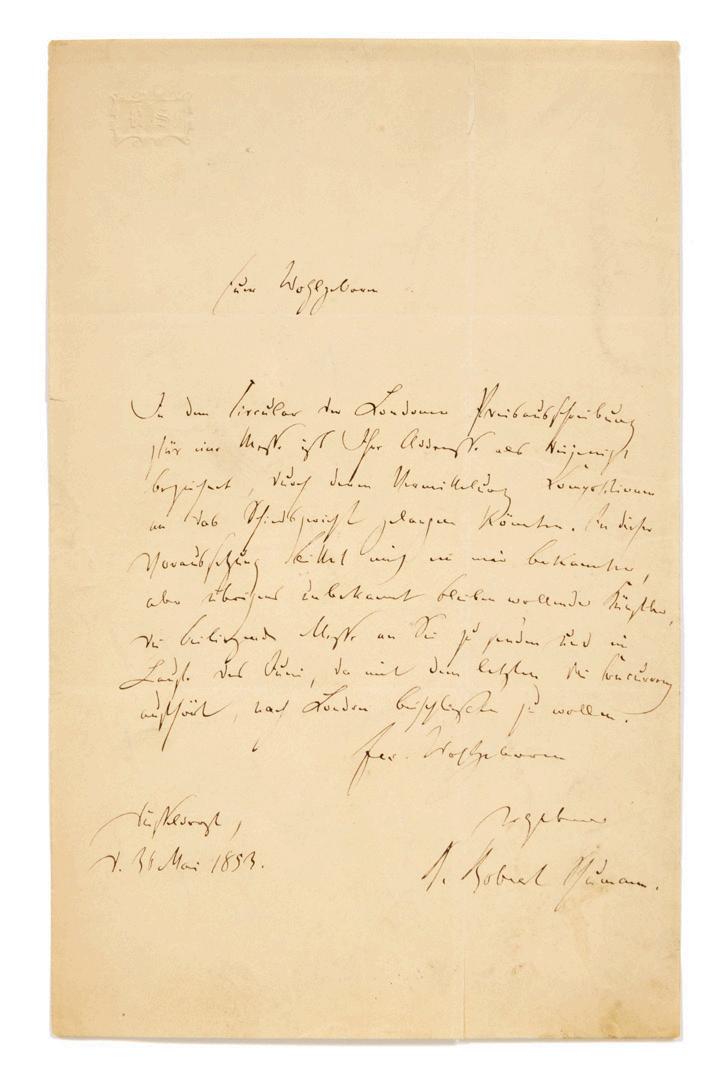 R S
Euer Wohlgeboren
In dem Circular der Londoner Preisausschreibung
für eine Messe ist Ihre Addresse als diejenige
bezeichnet, durch deren Vermittelung Compositionen
an das Schiedsgericht gelangen könnten. In dieser
Voraussetzung bittet mich ein mir bekannter,
aber übrigens unbekannt bleiben wollender Künstler,
die beiliegende Messe an Sie zu senden und im
Laufe des Juni, da mit dem letzten die Concurrenz
aufhört, nach London befördern zu wollen.
Ew. Wohlgeboren
Düsseldorf, ergebener
d. Mai 1853. R. Schumann.